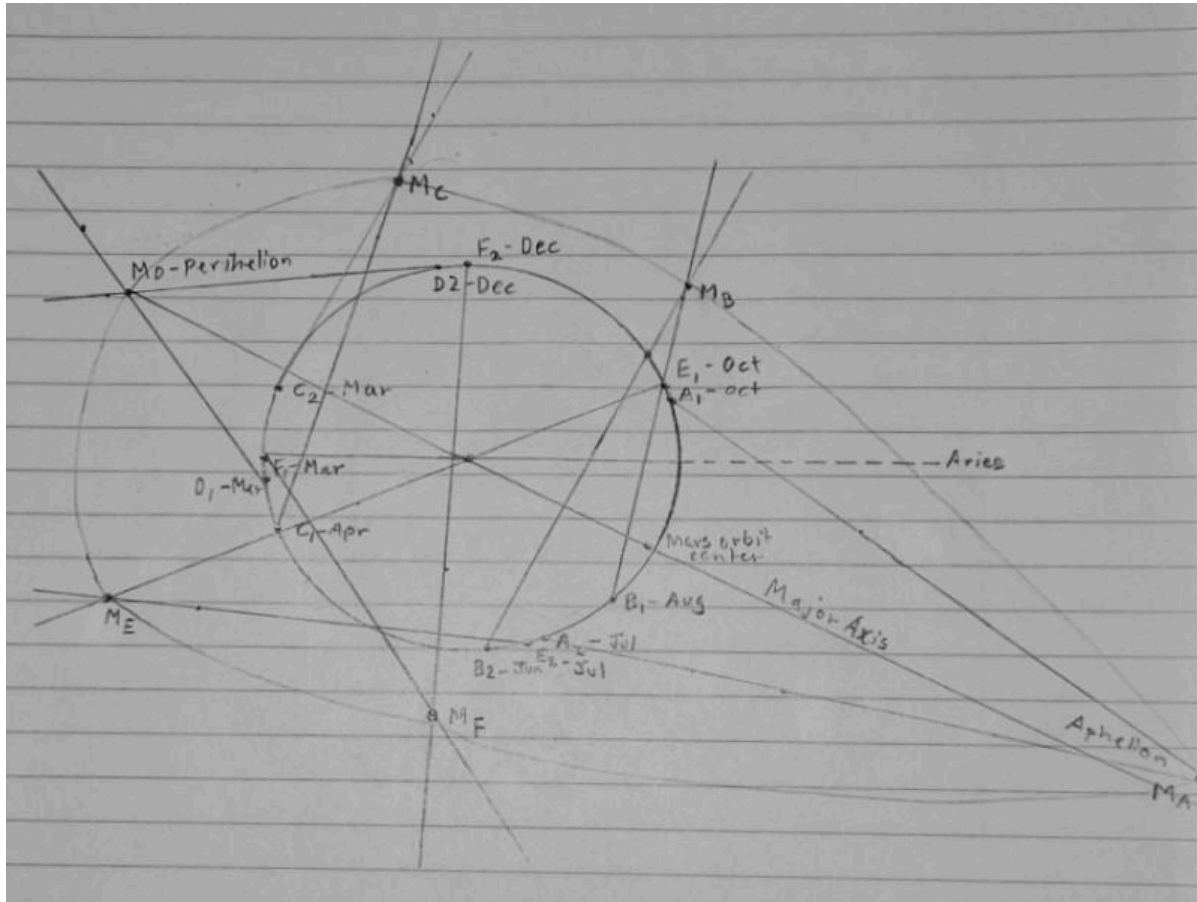 MC
F2-Dec
MD-Perihelion
D2-Dec
MB
E1-Oct
A1-Oct
C2-Mar
F1-Mar
Aries
D1-Mar
C1-Apr
Mars orbit
center
B1-Aug
Major Axis
ME
A2-Jul
B2-Jun E2-Jul
MF
Aphelion
MA